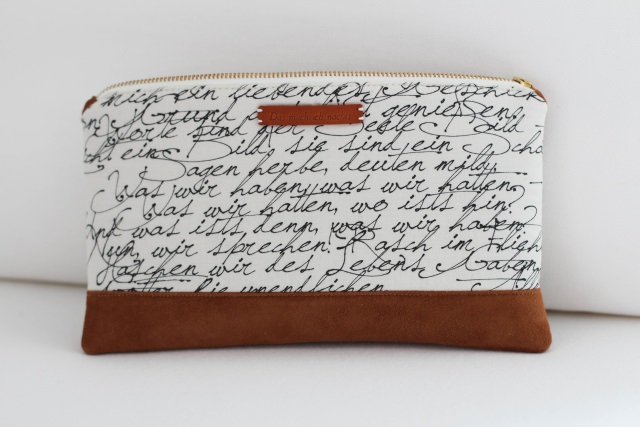 mich ein liebendes Geschick
Grund genießen
Worte sind der Seele Bild
Nicht ein Bild, sie sind ein Scha
Sagen herbe, deuten milde,
Was wir haben, was wir hatten.
Was wir hatten, wo ists hin?
Und was ists denn, was wir haben?
Nun, wir sprechen: Rasch im Flieh
Haschen wir des Lebens Gaben.
die unendlichen